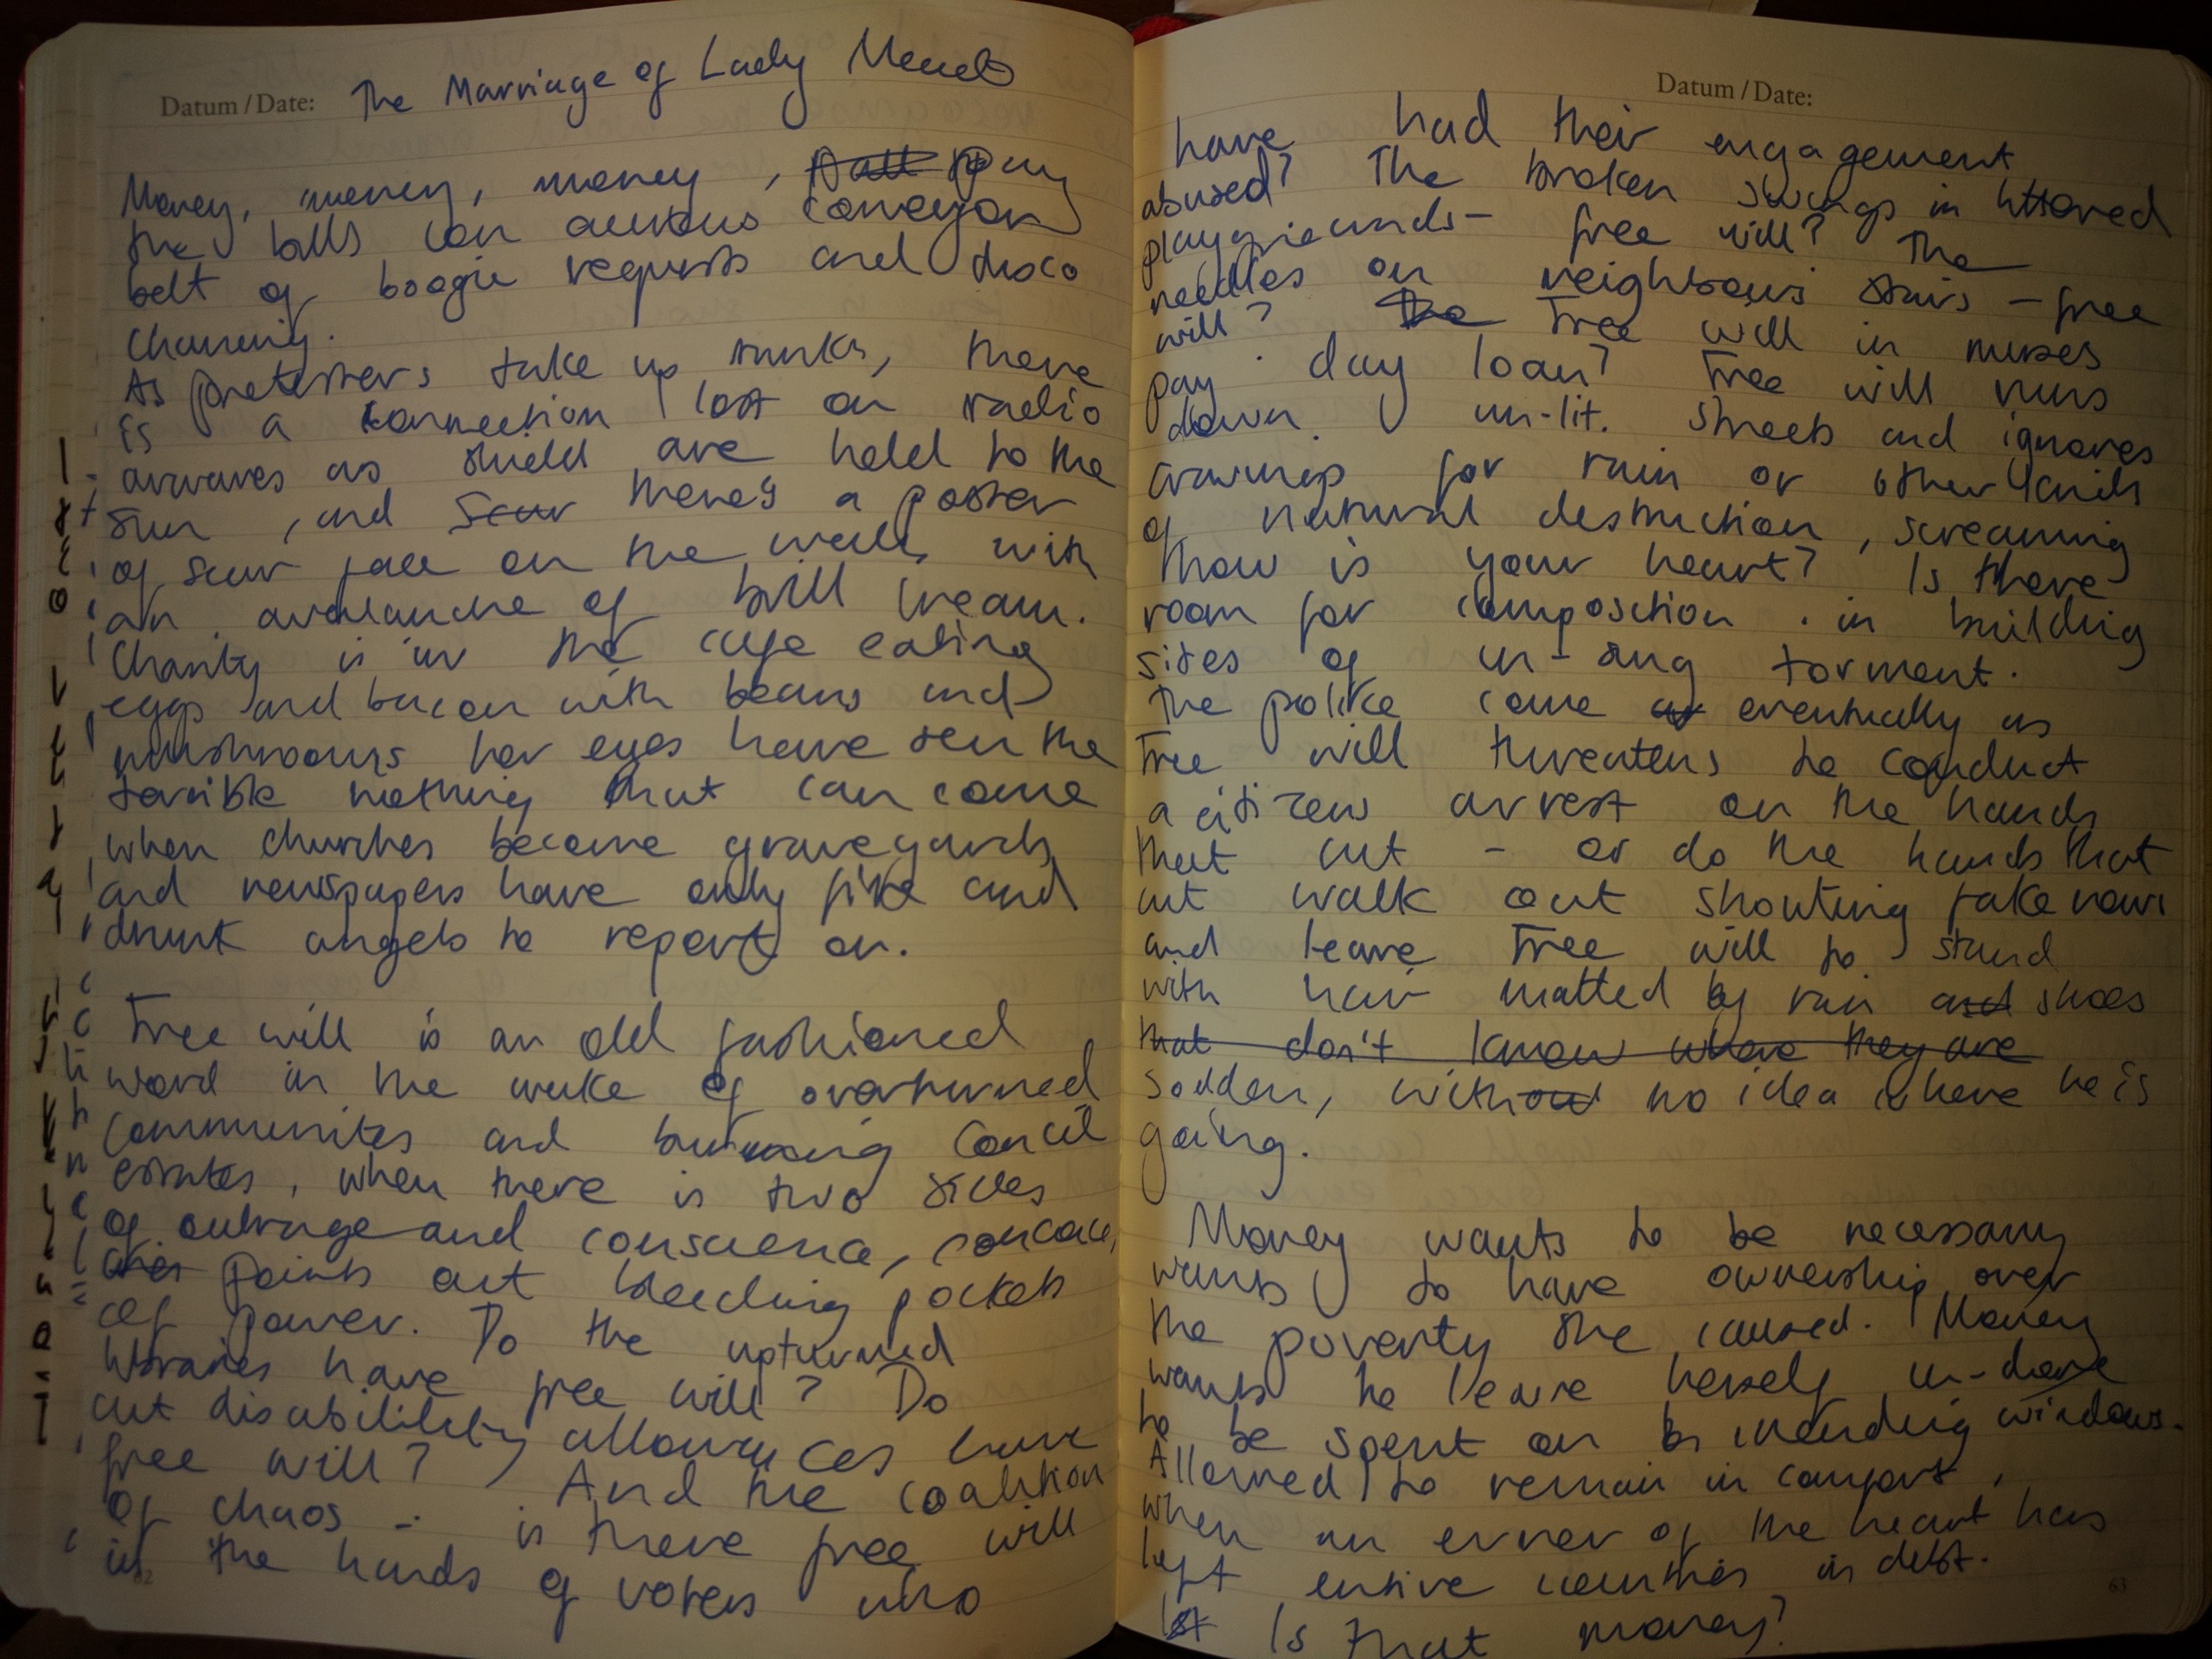 Datum / Date: The Marriage of Lady
Money, money, money, pay
the bills on conveyor
belt of boogie requests and disco
As protesters take up ranks, there
is a connection lost on radio
airwaves as shield are held to the
sun, and Scar there's a poster
of scar face on the wall, with
an avalanche of bill cream.
Charity is in the cafe eating
eggs and bacon with beans and
mushrooms her eyes have seen the
terrible nothing that can come
when churches become graveyards
and newspapers have only fire and
drunk angels to report on.
Free will is an old fashioned
word in the wake of overturned
communites and burning Concil
estates, when there is two sides
of outrage and conscience,
points out bleeding pockets
of power. Do the upturned
libraries have free will? Do
cut disability allowances have
free will? And the coalition
of chaos - is there free will
in the hands of voters who
62
Datum / Date:
have had their engagement
abused? The broken swings in littered
playgrounds - free will? The
needles on neighbours stairs - free
will? The Free will in nurses
pay day loan? Free will runs
down un-lit. streets and ignores
for rain or other kinds
of natural destruction, screaming
how is your heart? Is there
room for composition. in building
sites of un-sung torment.
The police come as eventually as
Free will threatens to conduct
a citizens arrest on the hands
that cut - or do the hands that
cut walk out shouting fake news
and leave Free will to stand
with hair matted by rain and shoes
that don't know where they are
sodden, without no idea where he is
going.
Money wants to be necessary
wants to have ownership over
the poverty she caused. Money
wants to leave herself un-done
to be spent on mending windows.
Allowed to remain in comfort,
when an error of the heart has
left entire countries in debt.
Is that money?
63